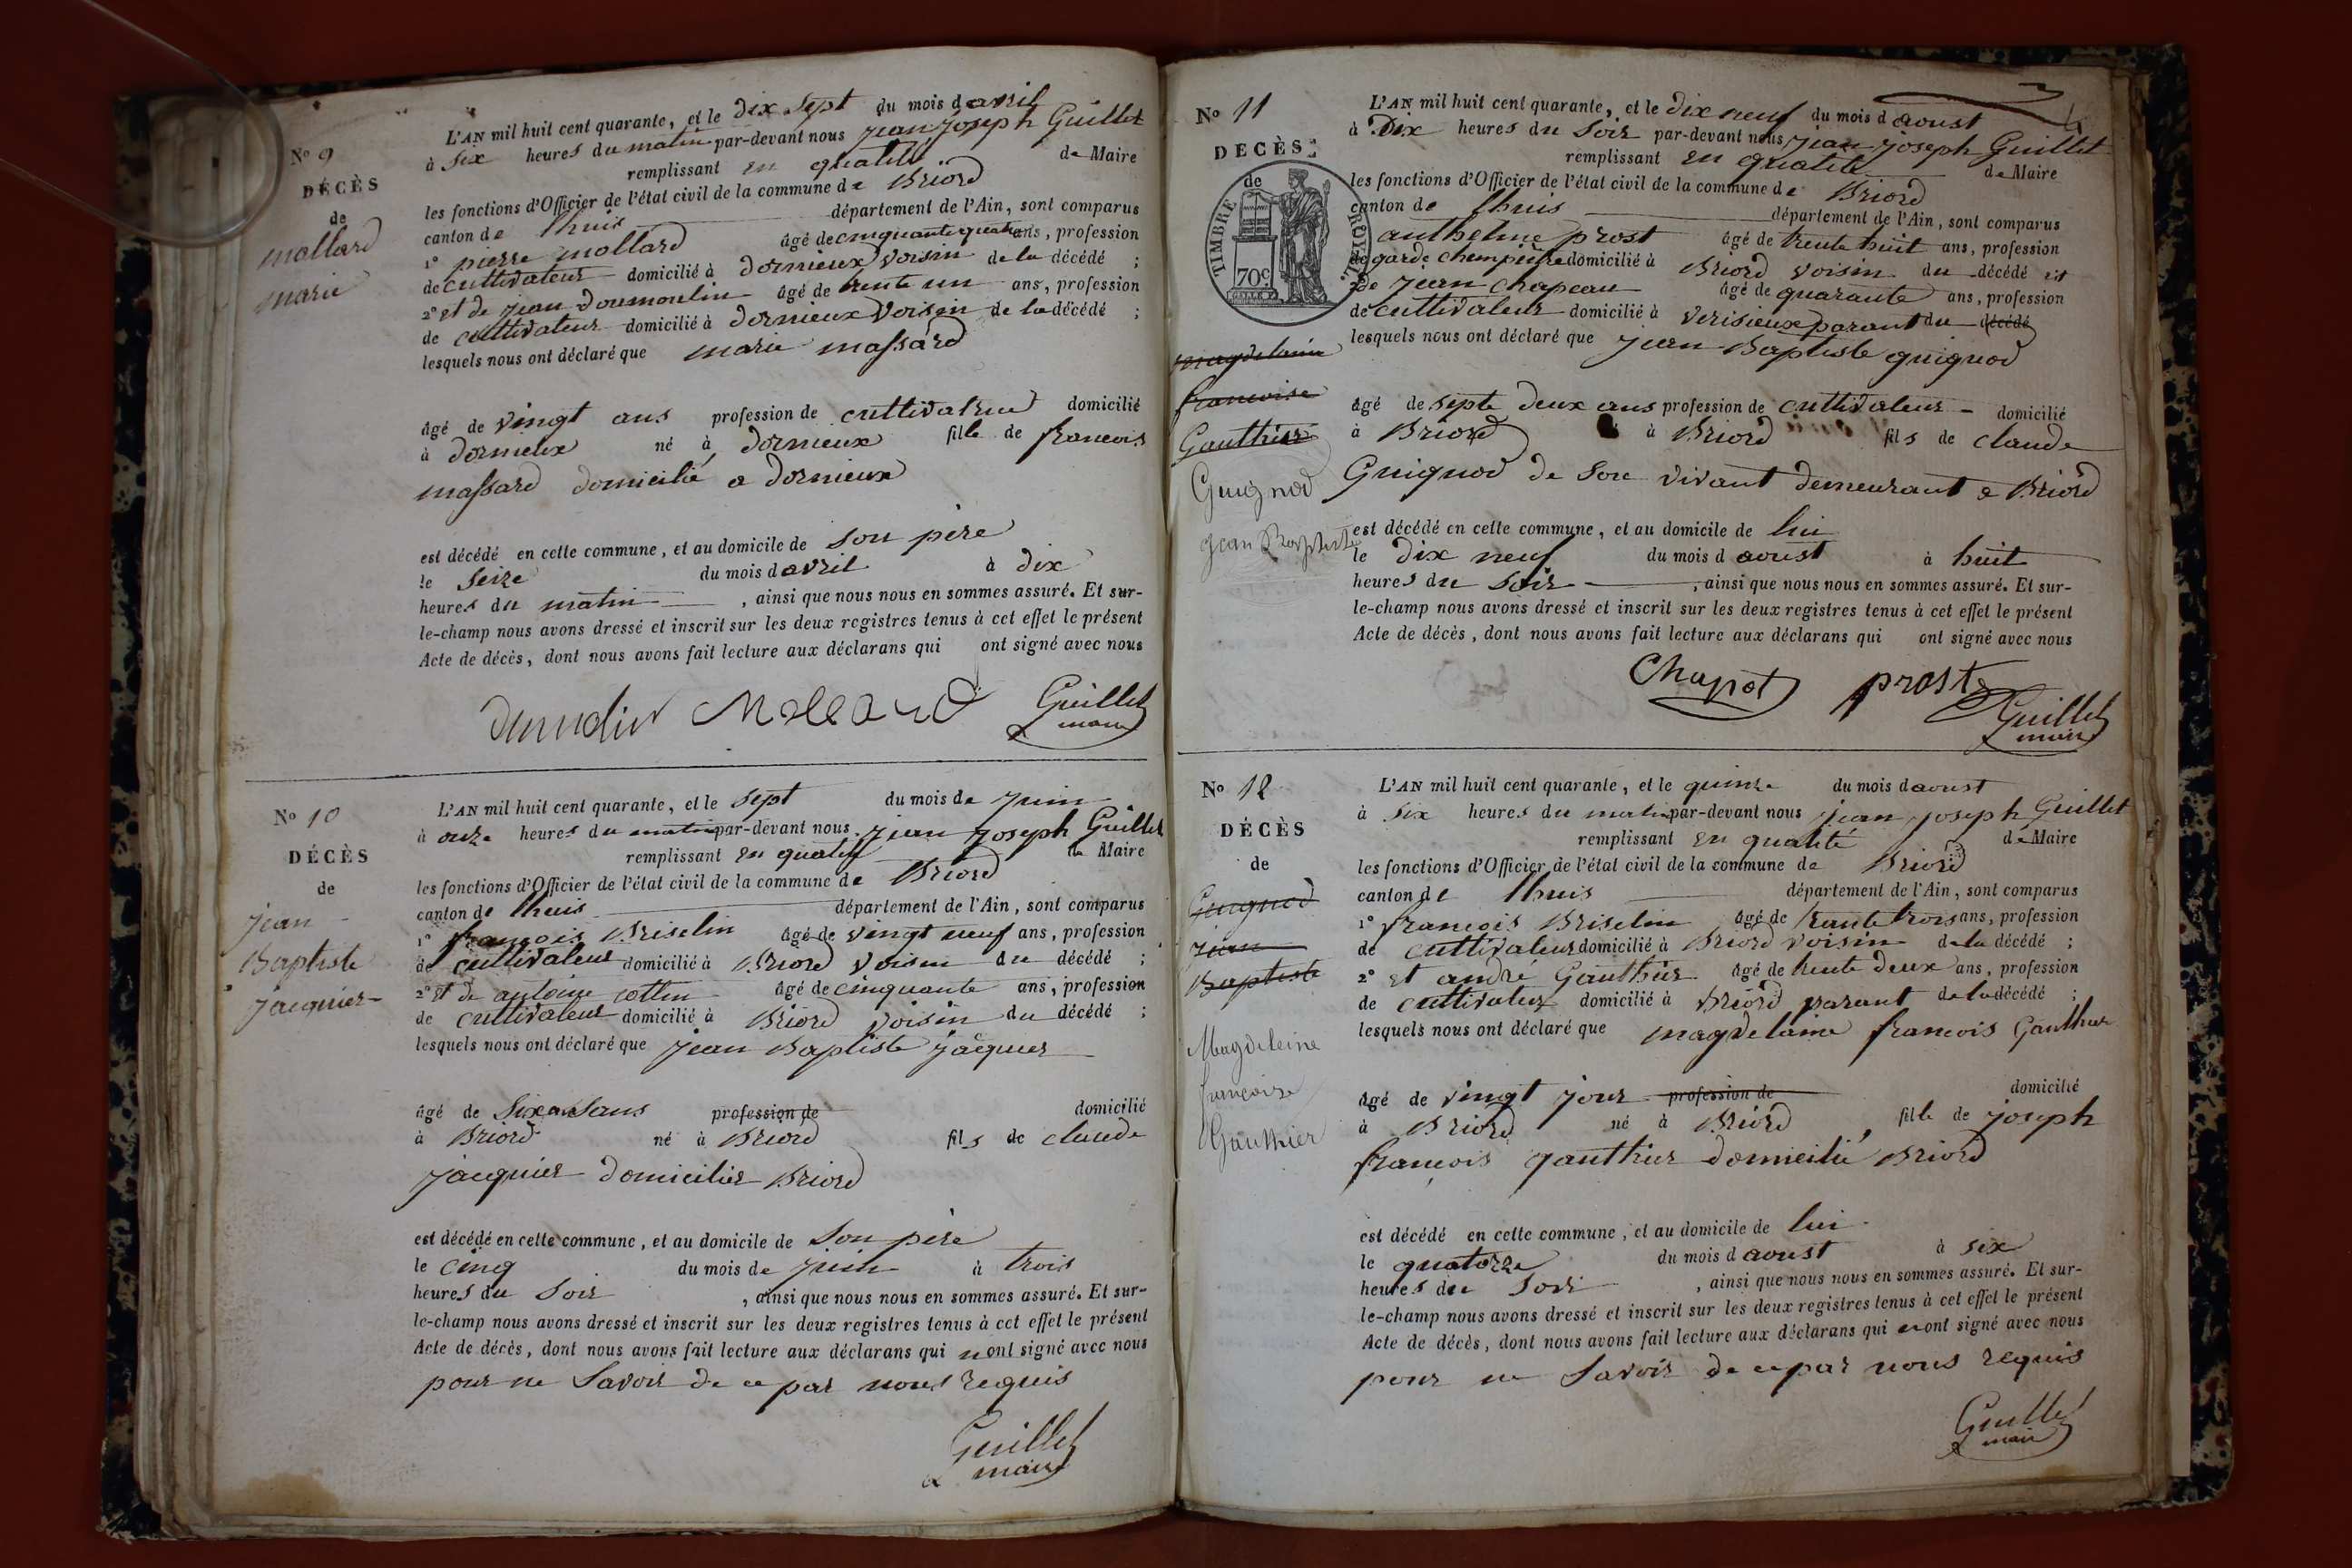 N° 9
DÉCÈS
de
mollard
marie
L'AN mil huit cent quarante, et le dix sept du mois d avril
à six heures du matin par-devant nous jean joseph Guillet
remplissant en qualité de Maire
les fonctions d'Officier de l'état civil de la commune de Briord
canton de lhuis département de l'Ain, sont comparus
1° pierre mollard âgé de cinquante quatre ans, profession
de cultivateur domicilié à dornieux voisin de la décédé ;
2° et de jean doumoulin âgé de trente un ans, profession
de cultivateur domicilié à dornieux voisin de la décédé ;
lesquels nous ont déclaré que marie massard
âgé de vingt ans profession de cultivatrice domicilié
à dornieux né à dornieux fille de francois
massard domicilié a dornieux
est décédé en cette commune, et au domicile de son père
le seize du mois d avril à dix
heures du matin , ainsi que nous nous en sommes assuré. Et sur-
le-champ nous avons dressé et inscrit sur les deux registres tenus à cet effet le présent
Acte de décès, dont nous avons fait lecture aux déclarans qui ont signé avec nous
Mollard Guillet
maire
N° 10
DÉCÈS
de
jean
Baptiste
jacquier
L'AN mil huit cent quarante, et le sept du mois de juin
à onze heures du matin par-devant nous jean joseph Guillet
remplissant en qualité de Maire
les fonctions d'Officier de l'état civil de la commune de Briord
canton de lhuis département de l'Ain, sont comparus
1° françois Briselin âgé de vingt neuf ans, profession
de cultivateur domicilié à Briord voisin du décédé ;
2° et de antoine cottin âgé de cinquante ans, profession
de cultivateur domicilié à Briord voisin du décédé ;
lesquels nous ont déclaré que jean Baptiste jacquier
âgé de six ans profession de domicilié
à Briord né à Briord fils de claude
jacquier domicilier Briord
est décédé en cette commune, et au domicile de son père
le cinq du mois de juin à trois
heures du soir , ainsi que nous nous en sommes assuré. Et sur-
le-champ nous avons dressé et inscrit sur les deux registres tenus à cet effet le présent
Acte de décès, dont nous avons fait lecture aux déclarans qui n ont signé avec nous
pour ne savoir de ce par nous requis
Guillet
maire
N° 11
DÉCÈS
de
TIMBRE ROYAL.
70c
magdelaine
francoise
Gauthier
Guignod
jean Baptiste
L'AN mil huit cent quarante, et le dix neuf du mois d aoust
à dix heures du soir par-devant nous jean joseph Guillet
remplissant en qualité de Maire
les fonctions d'Officier de l'état civil de la commune de Briord
canton de lhuis département de l'Ain, sont comparus
anthelme prost âgé de trente huit ans, profession
de garde chempietre domicilié à Briord voisin du décédé et
de jean chapeau âgé de quarante ans, profession
de cultivateur domicilié à verisieux parant du décédé
lesquels nous ont déclaré que jean Baptiste guignod
âgé de septe deux ans profession de cultivateur domicilié
à Briord à Briord fils de claude
Guignod de son vivant demeurant a Briord
est décédé en cette commune, et au domicile de lui
le dix neuf du mois d aoust à huit
heures du soir , ainsi que nous nous en sommes assuré. Et sur-
le-champ nous avons dressé et inscrit sur les deux registres tenus à cet effet le présent
Acte de décès, dont nous avons fait lecture aux déclarans qui ont signé avec nous
Chapot prost
Guillet
maire
N° 12
DÉCÈS
de
Guignod
jean
Baptiste
Magdeleine
françoise
Gauthier
L'AN mil huit cent quarante, et le quinze du mois d aoust
à six heures du matin par-devant nous jean joseph Guillet
remplissant en qualité de Maire
les fonctions d'Officier de l'état civil de la commune de Briord
canton de lhuis département de l'Ain, sont comparus
1° francois Briselin âgé de trante trois ans, profession
de cultivateur domicilié à Briord voisin de la décédé ;
2° et andré Gauthier âgé de trente deux ans, profession
de cultivateur domicilié à Briord parant de la décédé ;
lesquels nous ont déclaré que magdelaine francois Gauthier
âgé de vingt jour profession de domicilié
à Briord né à Briord fille de joseph
françois gauthier domicilié Briord
est décédé en cette commune, et au domicile de lui
le quatorze du mois d aoust à six
heures du soir , ainsi que nous nous en sommes assuré. Et sur-
le-champ nous avons dressé et inscrit sur les deux registres tenus à cet effet le présent
Acte de décès, dont nous avons fait lecture aux déclarans qui n ont signé avec nous
pour ne savoir de ce par nous requis
Guillet
maire